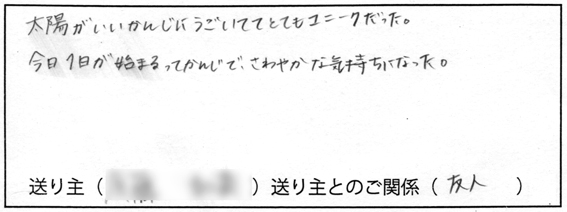 太陽がいいかんじにうごいててとてもユニークだった。
今日1日が始まるってかんじで、さわやかな気持ちになった。
送り主（　　　　）送り主とのご関係（ 友人 ）